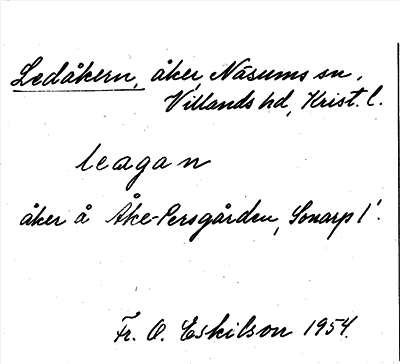 Ledåkern, åker, Näsums sn,
Villands hd, Krist. l.
leagan
åker å Åke-Persgården, Sonarp 1.
Fr. O. Eskilson 1954.